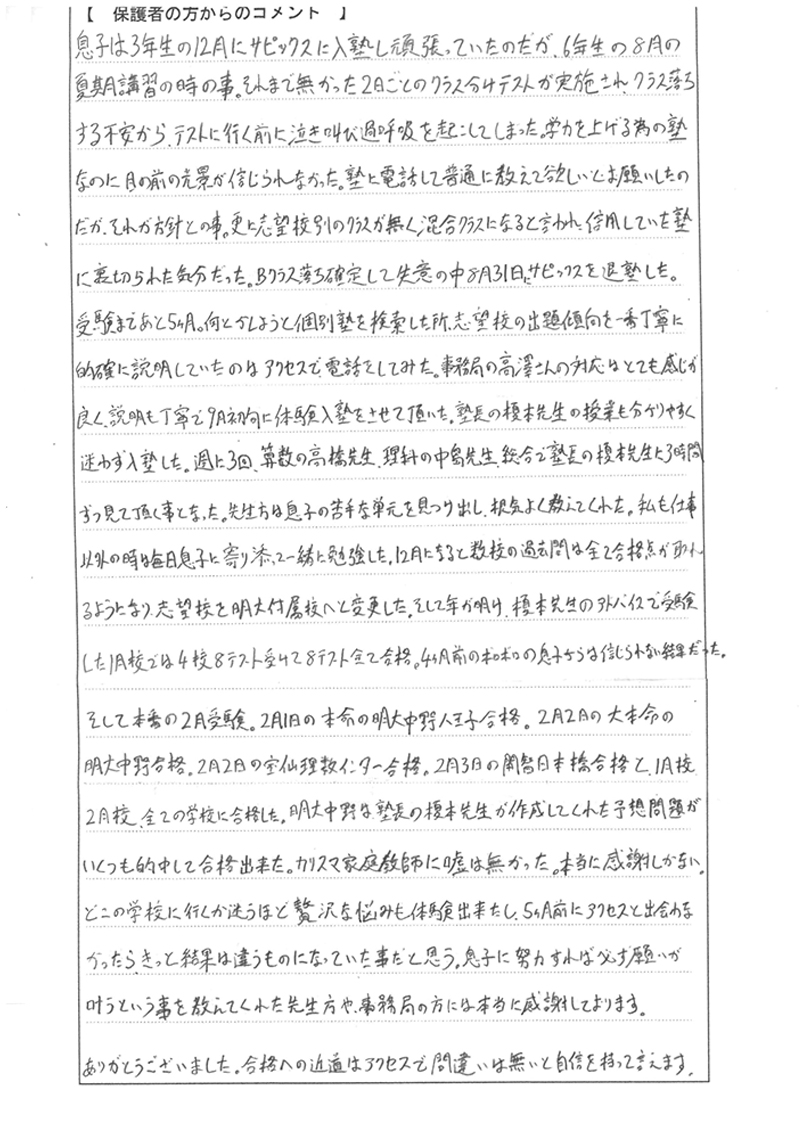 【 保護者の方からのコメント 】
息子は3年生の12月にサピックスに入塾し頑張っていたのだが、6年生の8月の
夏期講習の時の事。それまで無かった2日ごとのクラス分けテストが実施され、クラス落ち
する不安から、テストに行く前に泣き叫び過呼吸を起こしてしまった。学力を上げる為の塾
なのに目の前の光景が信じられなかった。塾に電話して普通に教えて欲しいとお願いしたの
だが、それが方針との事。更に志望校別のクラスが無く、混合クラスになると言われ、信用していた塾
に裏切られた気分だった。Bクラス落ち確定して失意の中8月31日にサピックスを退塾した。
受験まであと5ヶ月。何とかしようと個別塾を検索した所、志望校の出題傾向を一番丁寧に
的確に説明していたのはアクセスで、電話をしてみた。事務局の高澤さんの対応はとても感じが
良く、説明も丁寧で9月初旬に体験入塾をさせて頂いた。塾長の榎本先生の授業も分かりやすく
迷わず入塾した。週に3回、算数の高橋先生、理科の中島先生、総合で塾長の榎本先生に3時間
ずつ見て頂く事となった。先生方は息子の苦手な単元を見つけ出し、根気よく教えてくれた。私も仕事
以外の時は毎日息子に寄り添って一緒に勉強した。12月になると数校の過去問は全て合格点が取れ
るようになり、志望校を明大付属校へと変更した。そして年が明け、榎本先生のアドバイスで受験
した1月校では4校8テスト受けて8テスト全て合格。4ヶ月前のボロボロの息子からは信じられない結果だった。
そして本番の2月受験。2月1日の本命の明大中野八王子合格。2月2日の大本命の
明大中野合格。2月2日の宝仙理数インター合格。2月3日の開智日本橋合格と、1月校
2月校、全ての学校に合格した。明大中野は塾長の榎本先生が作成してくれた予想問題が
いくつも的中して合格出来た。カリスマ家庭教師に嘘は無かった。本当に感謝しかない。
どこの学校に行くか迷うほど贅沢な悩みも体験出来たし、5ヶ月前にアクセスと出会わな
かったら、きっと結果は違うものになっていた事だと思う。息子に努力すれば必ず願いが
叶うという事を教えてくれた先生方や、事務局の方には本当に感謝しております。
ありがとうございました。合格への近道はアクセスで間違いは無いと自信を持って言えます。